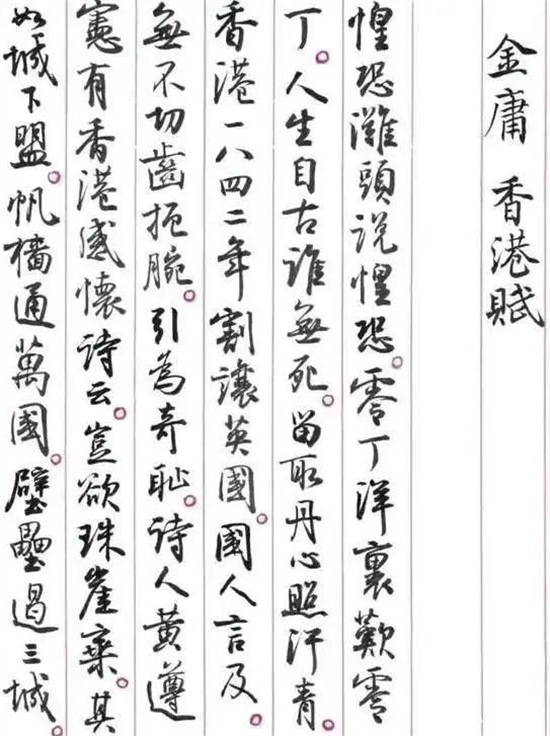 金庸 香港賦
惶恐灘頭説惶恐。零丁洋裏歎零
丁。人生自古誰無死。留取丹心照汗青。
香港一八四二年割讓英國。國人言及
無不切齒扼腕。引為奇恥。詩人黃遵
憲有香港感懷詩云。豈欲珠崖棄。其
如城下盟。帆檣通萬國。壁壘逼三城。